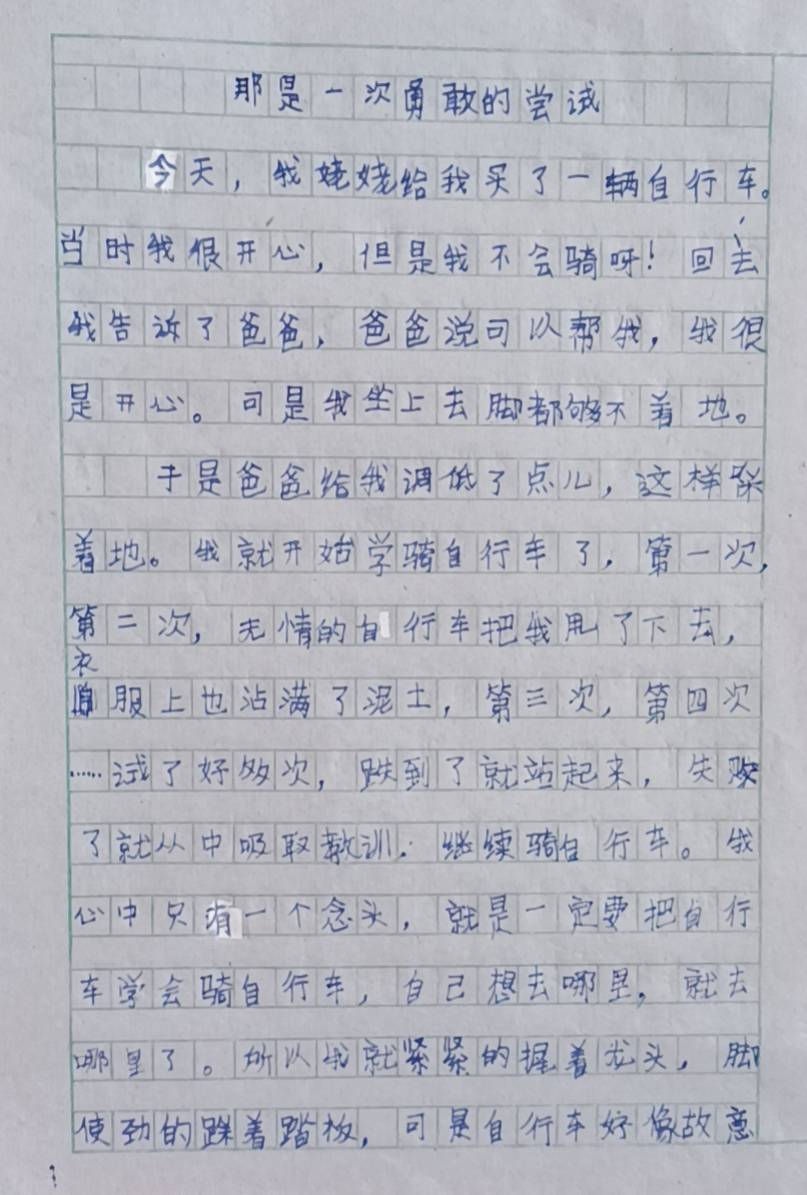 那是一次勇敢的尝试
今天，我姥姥给我买了一辆自行车。
当时我很开心，但是我不会骑呀！回去
我告诉了爸爸，爸爸说可以帮我，我很
是开心。可是我坐上去脚都够不着地。
于是爸爸给我调低了点儿，这样踩
着地。我就开始学骑自行车了，第一次，
第二次，无情的自行车把我甩了下去，
衣服上也沾满了泥土，第三次，第四次
……试了好多次，跌到了就站起来，失败
了就从中吸取教训。继续骑自行车。我
心中只有一个念头，就是一定要把自行
车学会骑自行车，自己想去哪里，就去
哪里了。所以我就紧紧的握着龙头，脚
使劲的踩着踏板，可是自行车好像故意